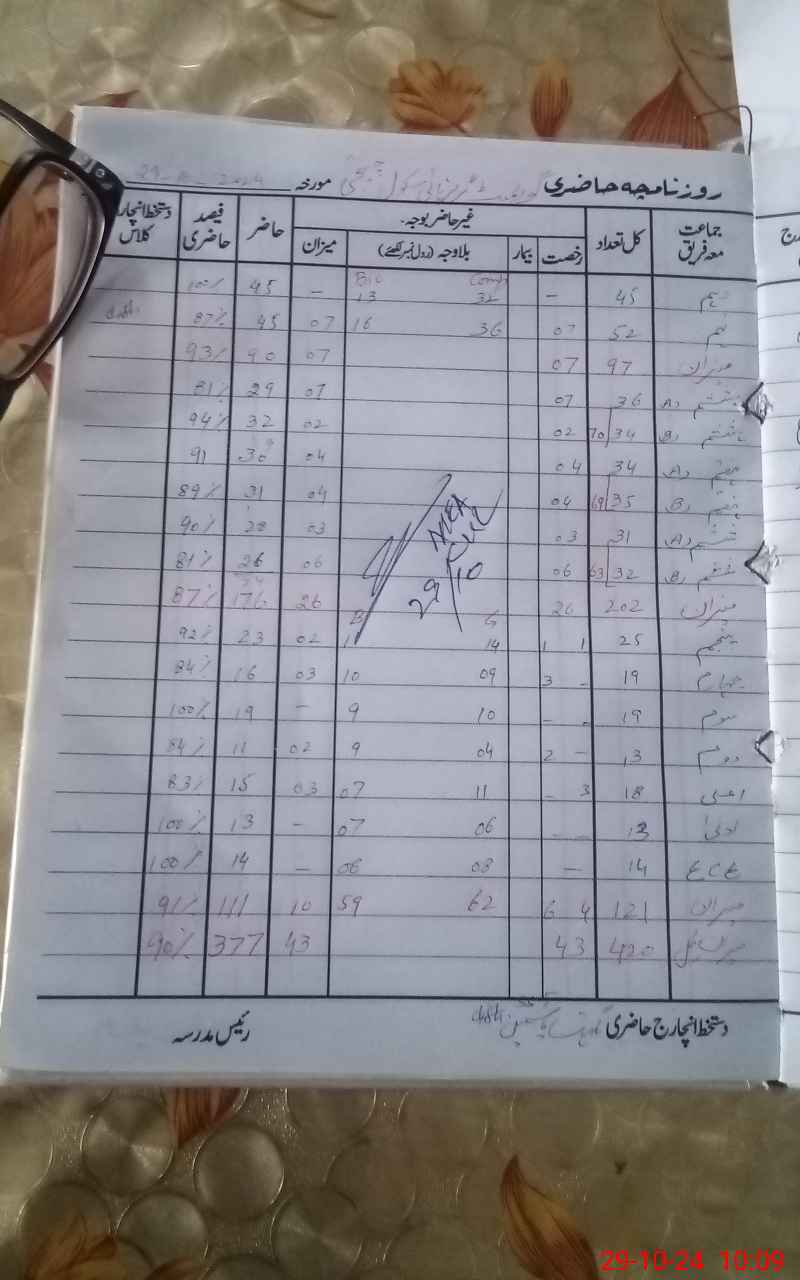 روزنامچہ حاضری گورنمنٹ سکول مورخہ 29-10-2024
جماعت معہ فریق کل تعداد غیر حاضر بوجہ۔ حاضر فیصد حاضری دستخط انچارج کلاس
رخصت بیمار بلاوجہ (رول نمبر لکھئے) میزان
دہم 45 – Bio 13 Comp 32 – 45 100%
نہم 52 07 36 16 07 45 87%
میزان 97 07 07 90 93%
ہشتم A 36 07 07 29 81%
ہشتم B 34 70 02 02 32 94%
ہفتم A 34 04 04 30 91
ہفتم B 35 69 04 04 31 89%
ششم A 31 03 03 28 90%
ششم B 32 63 06 06 26 81%
میزان 202 26 26 176 87%
پنجم 25 1 1 G 14 B 1 02 23 92%
چہارم 19 - 3 09 10 03 16 84%
سوم 19 - - 10 9 – 19 100%
دوم 13 – 2 04 9 02 11 84%
اعلی 18 3 - 11 07 03 15 83%
ادنیٰ 13 - - 06 07 – 13 100%
ECE 14 – 08 06 – 14 100%
میزان 121 4 6 62 59 10 111 91%
میزان کل 420 43 43 377 90%
MEA
29/10
دستخط انچارج حاضری SST
رئیس مدرسہ
29-10-24 10:09